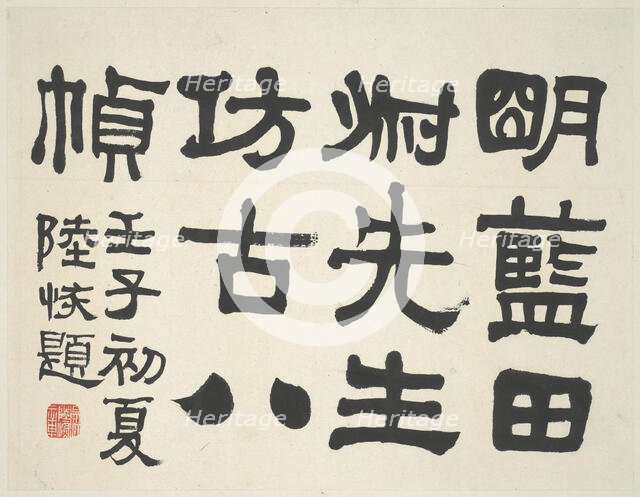 朙藍田
叔先生
仿古八
幀
壬子初夏
陸恢題
Heritage
Heritage
Heritage
Heritage
Heritage
Heritage